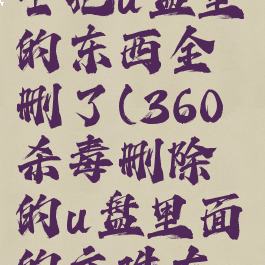 u盘里
的东西全
删了(360
杀毒删除
的u盘里面
的